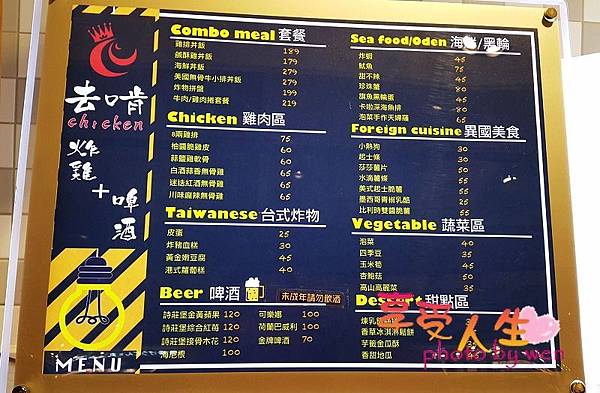 去啃
chicken
炸雞+啤酒
MENU
Combo meal 套餐
雞排丼飯 189
鹹酥雞丼飯 179
海鮮丼飯 279
美國無骨牛小排丼飯 279
炸物拼盤 199
牛肉/雞肉捲套餐 219
Chicken 雞肉區
8兩雞排 75
柚醬脆雞皮 60
蒜鹽雞軟骨 60
白酒蒜香無骨雞
迷迭紅酒無骨雞
川味麻辣無骨雞
Taiwanese 台式炸物
皮蛋 25
炸豬血糕 30
黃金嫩豆腐 45
港式蘿蔔糕 40
Beer 啤酒 未成年請勿飲酒
詩莊堡金黃蘋果 120
詩莊堡綜合紅莓 100
詩莊堡接骨木花 120
海尼根 100
可樂娜 100
荷蘭巴威利 100
金牌啤酒 70
Sea food/Oden 海鮮/黑輪
炸蝦 45
魷魚 75
甜不辣 45
珍珠蟹 80
旗魚黑輪蛋 40
卡啦深海魚排 80
泡菜手作天婦羅 65
Foreign cuisine 異國美食
小熱狗 30
起士條 30
莎莎薯片
水滴薯條
美式起士脆薯 55
墨西哥青椒乳酪
比利時雙醬脆薯
Vegetable 蔬菜區
泡菜 40
四季豆 45
玉米筍 45
杏鮑菇 50
高山高麗菜 35
Dessert 甜點區
煉乳
香草冰淇淋鬆餅
芋籤金瓜酥
香甜地瓜
享受人生
photo by wen